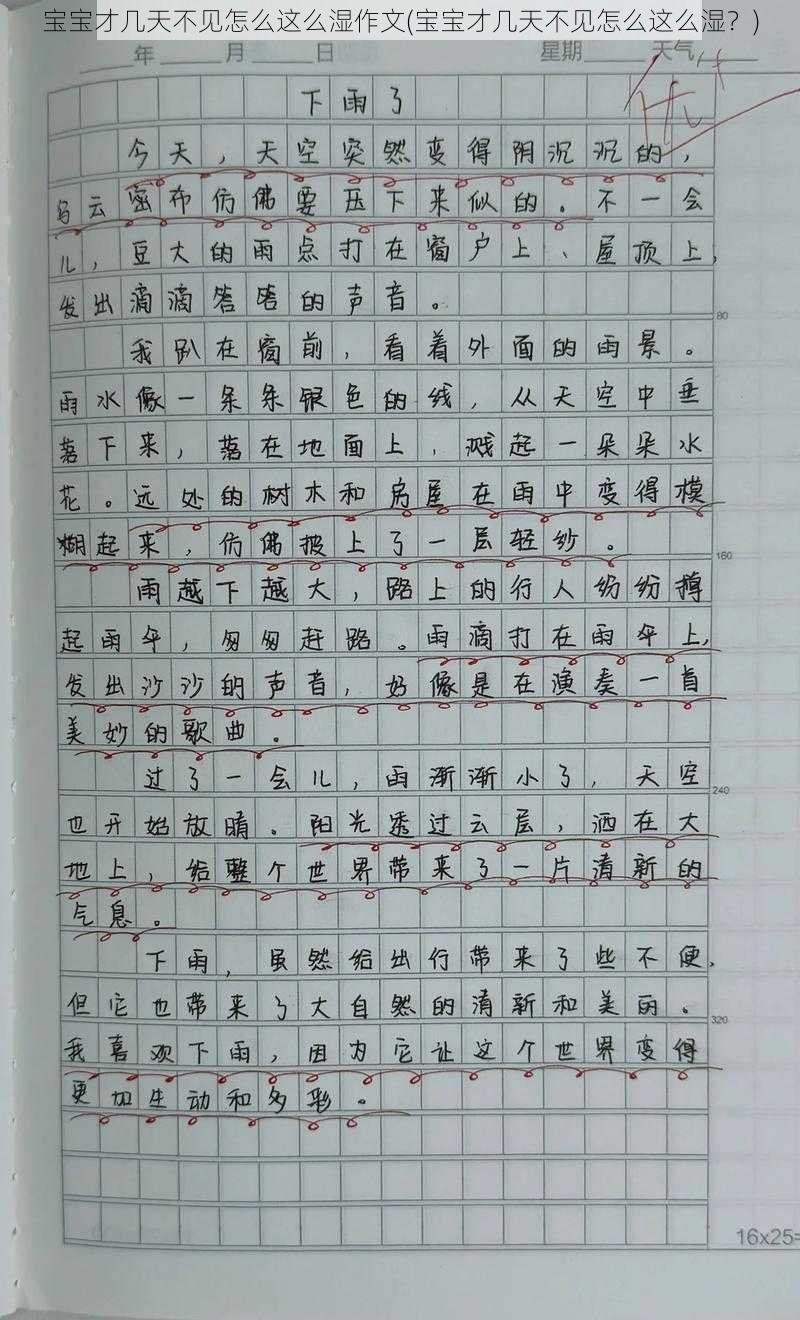 宝宝才几天不见怎么这么湿作文(宝宝才几天不见怎么这么湿？)
年 月 日 星期 天气
优
下雨了
今天，天空突然变得阴沉沉的，
乌云密布仿佛要压下来似的。不一会
儿，豆大的雨点打在窗户上、屋顶上，
发出滴滴答答的声音。
80
我趴在窗前，看着外面的雨景。
雨水像一条条银色的线，从天空中垂
落下来，落在地面上，溅起一朵朵水
花。远处的树木和房屋在雨中变得模
糊起来，仿佛披上了一层轻纱。
160
雨越下越大，路上的行人纷纷撑
起雨伞，匆匆赶路。雨滴打在雨伞上，
发出沙沙的声音，好像是在演奏一首
美妙的歌曲。
过了一会儿，雨渐渐小了，天空
240
也开始放晴。阳光透过云层，洒在大
地上，给整个世界带来了一片清新的
气息。
下雨，虽然给出行带来了些不便，
但它也带来了大自然的清新和美丽。
320
我喜欢下雨，因为它让这个世界变得
更加生动和多彩。
16x25=